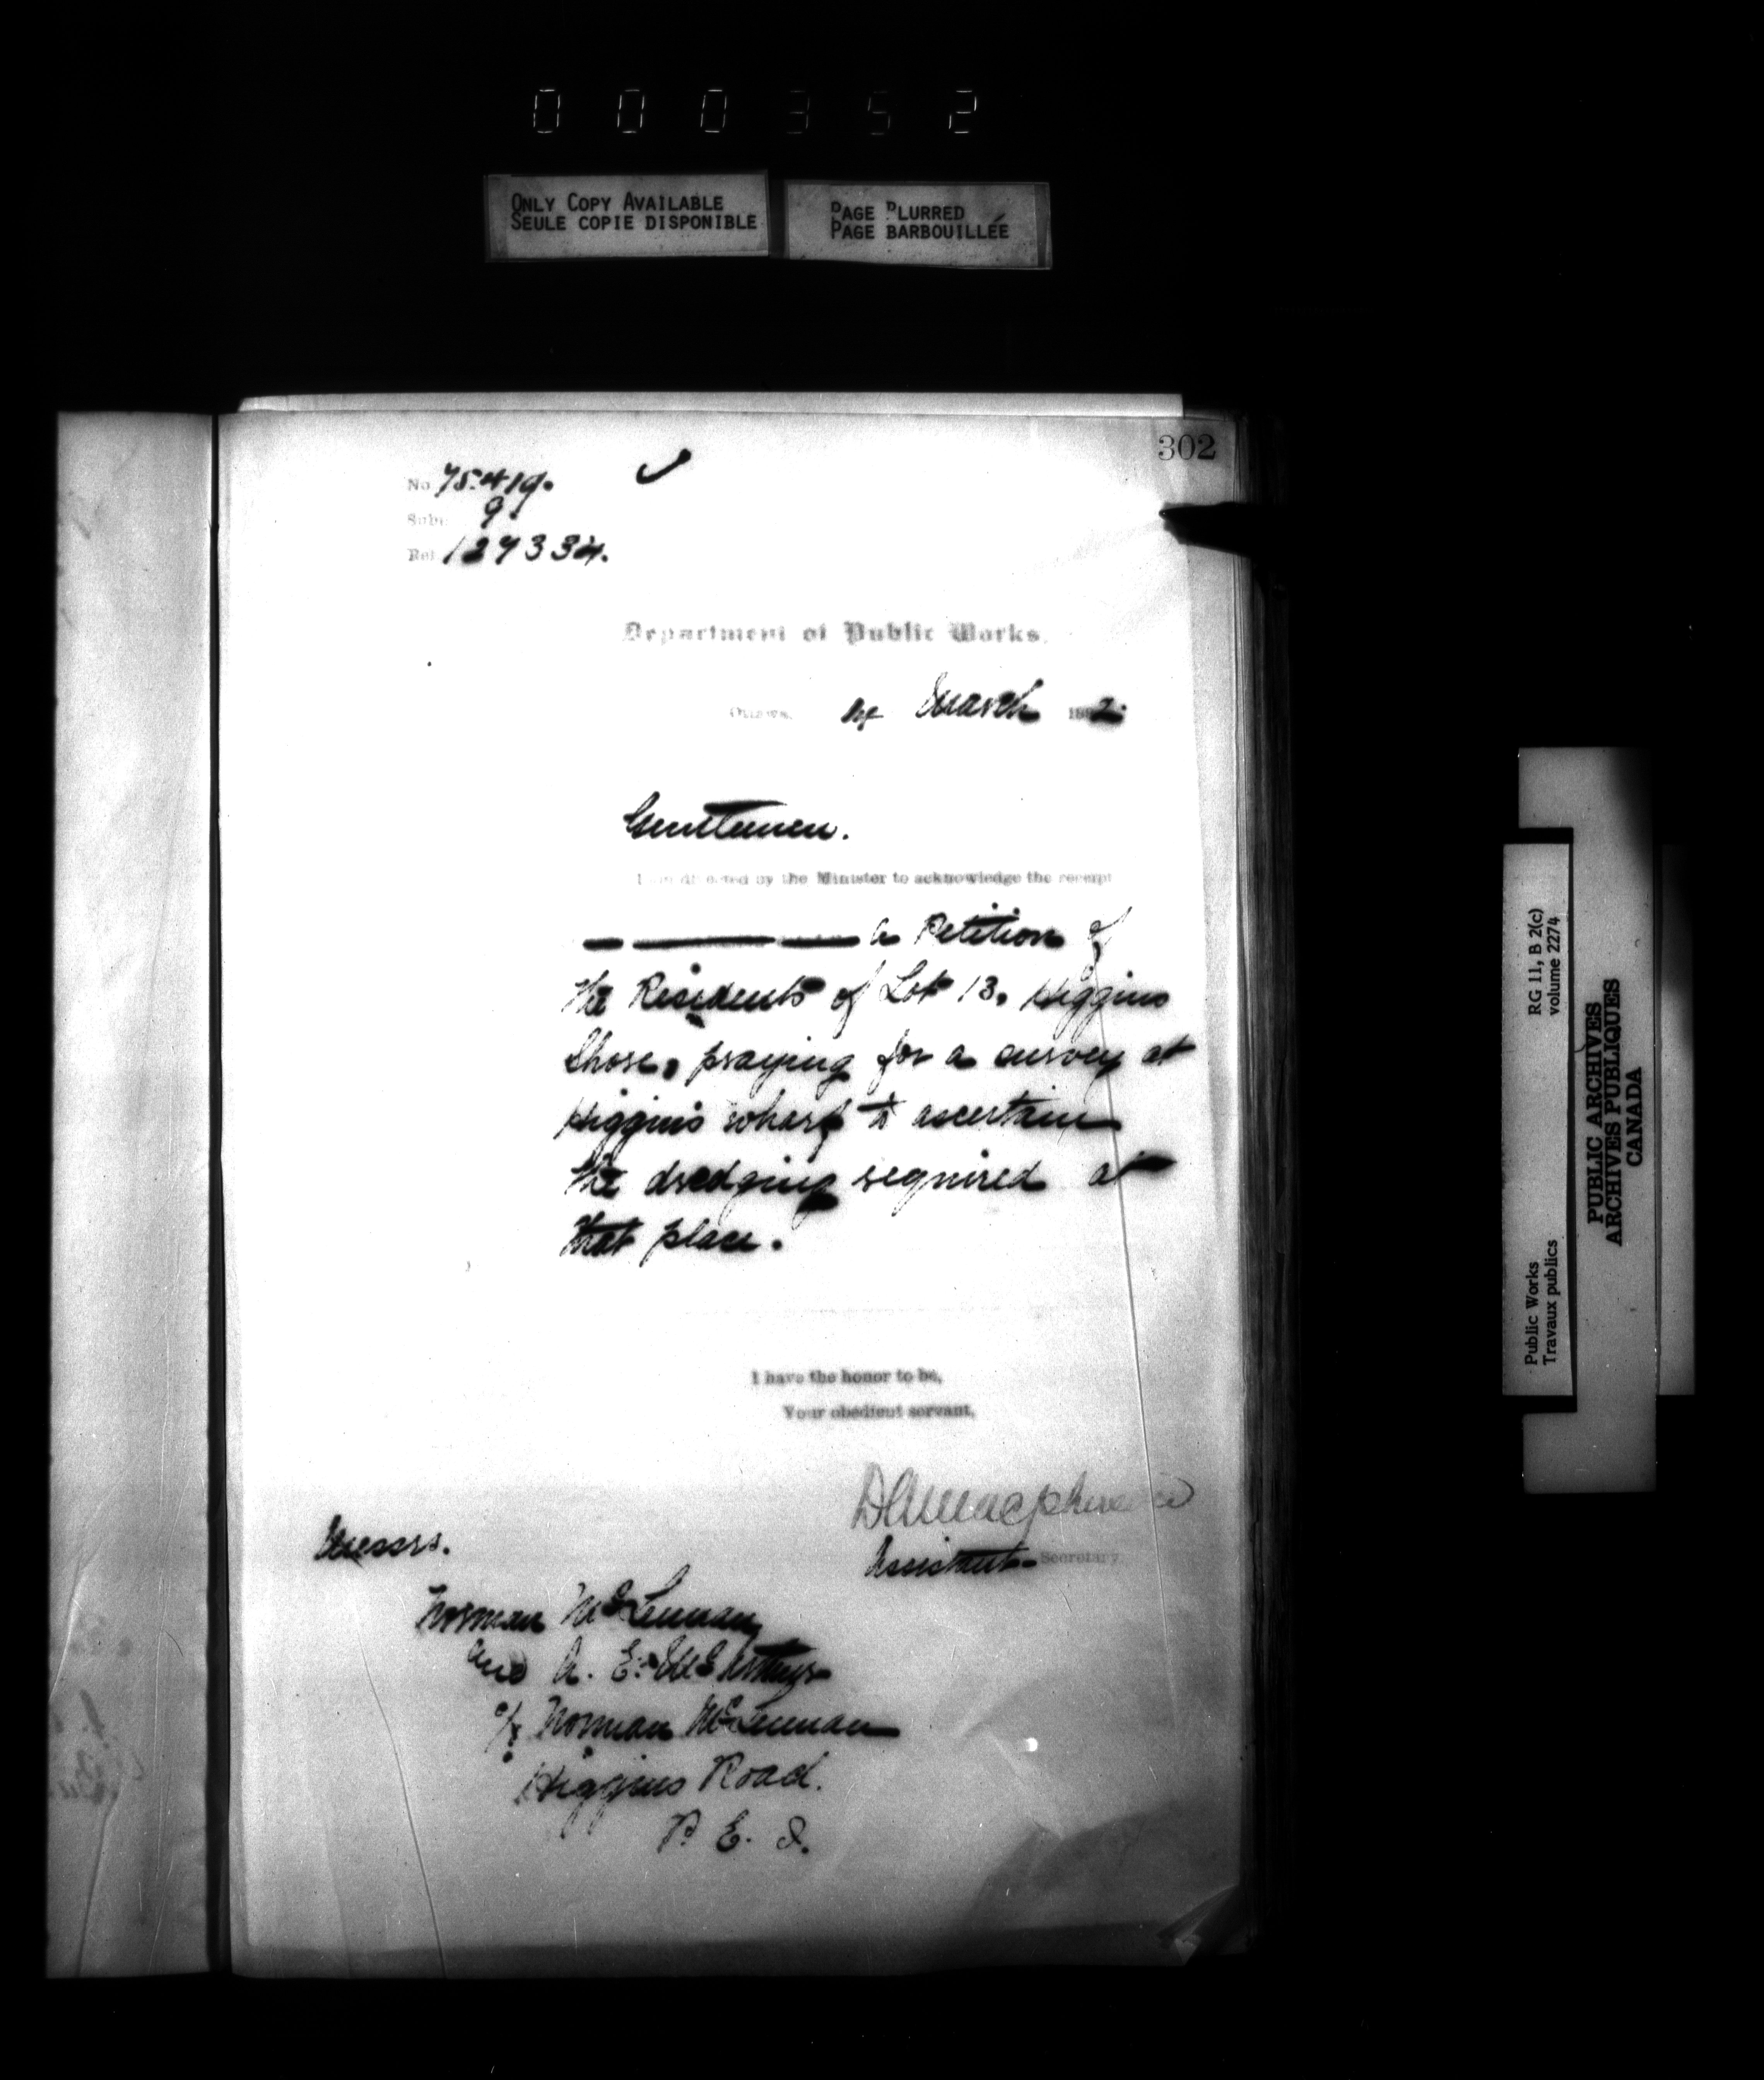 000352
ONLY COPY AVAILABLE
SEULE COPIE DISPONIBLE
PAGE BLURRED
PAGE BARBOUILLÉE
302
No 75419.
Subj 9.
Ref 127334.
Department of Public Works.
Ottawa, March 1892.
Gentlemen.
I am directed by the Minister to acknowledge the receipt
a Petition of
the Residents of Lot 13, Higgins
Shore, praying for a survey at
Higgins wharf to ascertain
the dredging required at
that place.
I have the honor to be,
Your obedient servant,
DA Macpherson
Assistant Secretary
Messrs.
Norman McLennan
and A. E. McArthur
c/o Norman McLennan
Higgins Road.
P. E. I.
Public Works
Travaux publics
RG 11, B 2(c)
volume 2274
PUBLIC ARCHIVES
ARCHIVES PUBLIQUES
CANADA